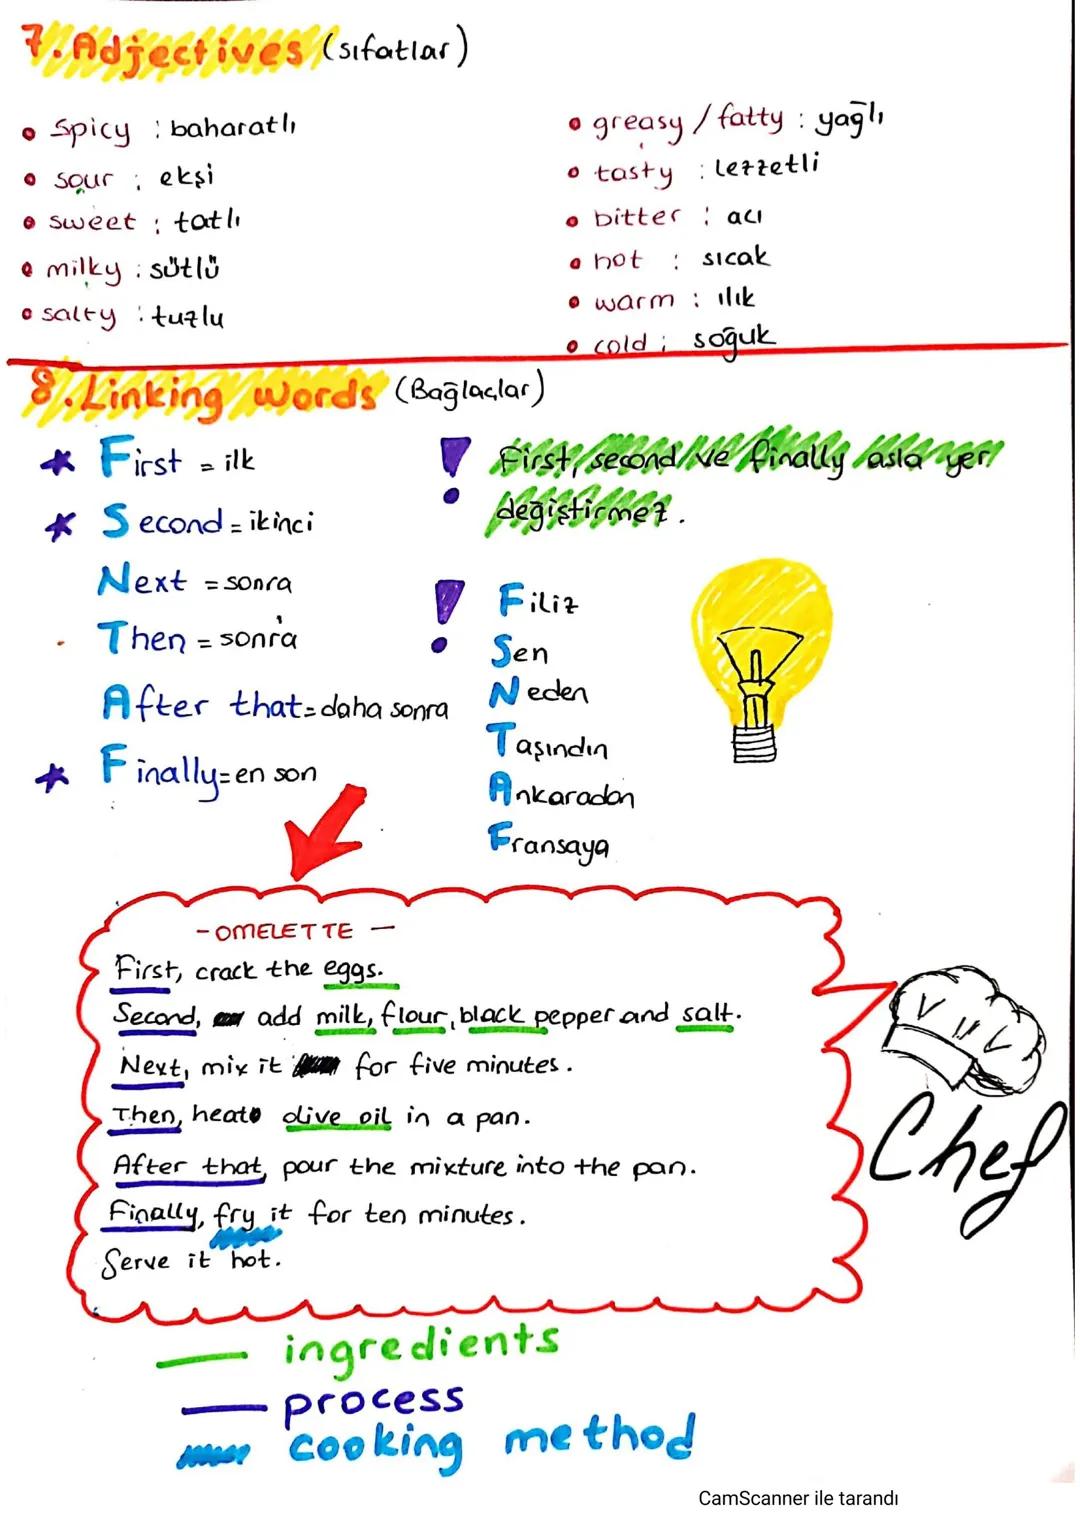 7. Adjectives (sıfatlar)
• spicy : baharatlı
• sour : ekşi
• sweet : tatlı
• milky : sütlü
• salty : tuzlu
• greasy / fatty : yağlı
• tasty : lezzetli
• bitter : acı
• hot : sıcak
• warm : ılık
• cold : soğuk
8. Linking words (Bağlaçlar)
* First = ilk
* Second = ikinci
Next = sonra
Then = sonra
After that = daha sonra
* Finally = en son
! First, second ve finally asla yer
değiştirmez.
! Filiz
Sen
Neden
Taşındın
Ankaradan
Fransaya
- OMELETTE -
First, crack the eggs.
Second, add milk, flour, black pepper and salt.
Next, mix it for five minutes.
Then, heat olive oil in a pan.
After that, pour the mixture into the pan.
Finally, fry it for ten minutes.
Serve it hot.
Chef
ingredients
process
cooking method
CamScanner ile tarandı